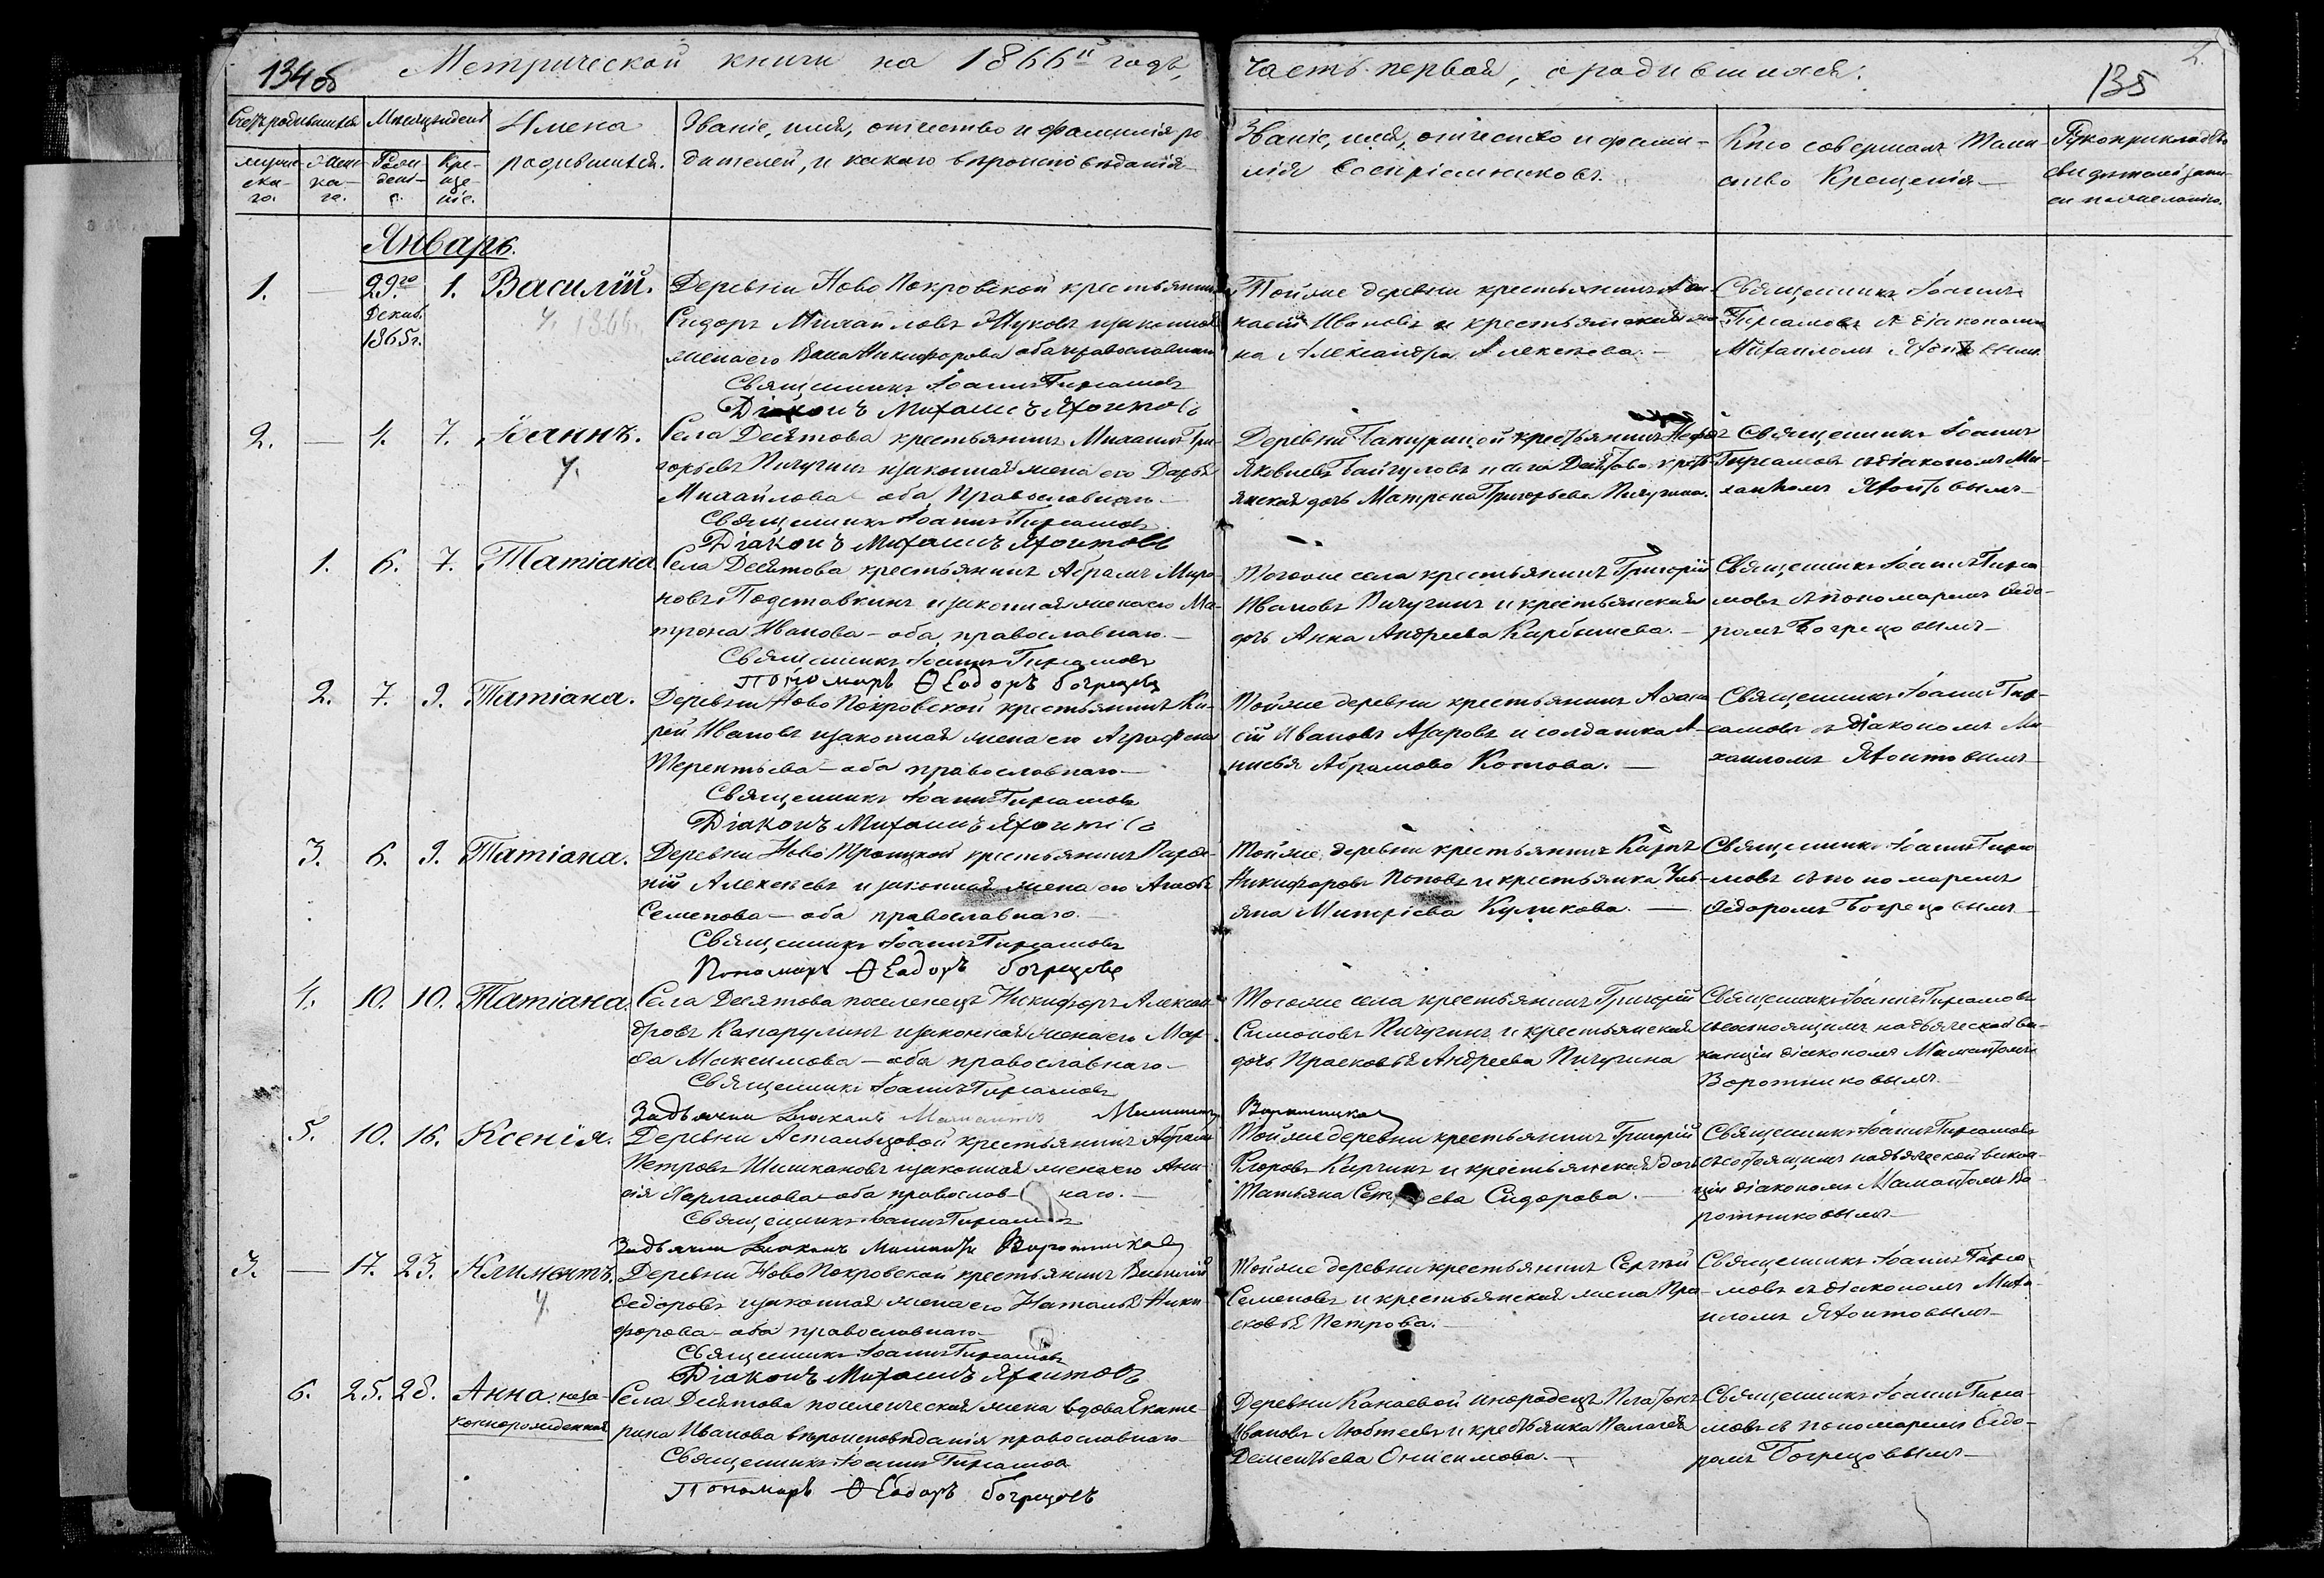 134 об
Метрической книги на 1866й годъ,
часть первая, о родившихся:
135
2.
Счетъ родившихся
Мѣсяцъ и день
Имена родившихся.
Званіе, имя, отчество и фамилія родителей, и какого вѣроисповѣданія
Званіе, имя, отчество и фамилія воспріемниковъ.
Кто совершалъ Таинство Крещенія
Рукоприкладство свидѣтелей записи по желанію.
мужескаго.
женскаго.
Рожденіе.
Крещеніе.
Январь.
1.
—
29го
Декаб.
1865г.
1.
Василій.
у. 1866г.
Деревни Ново Покровской крестьянинъ
Сидоръ Михайловъ Жуковъ и законная
жена его Никифорова оба православнаго
Священникъ Іоаннъ Гирсамовъ
Діаконъ Михаилъ Яхонтовъ
Тойже деревни крестьянинъ
Ивановъ и крестьянская же-
на Александра Алексѣева. —
Священникъ Іоаннъ
Гирсамовъ съ діакономъ
Михаиломъ Яхонтовымъ
2.
—
4.
7.
Іоаннъ.
у.
Села Десятова крестьянинъ Михаилъ Гри-
горьевъ Пичугинъ и законная жена его Дарья
Михайлова оба православнаго —
Священникъ Іоаннъ Гирсамовъ
Діаконъ Михаилъ Яхонтовъ
Деревни крестьянинъ
Яковлевъ Байгуловъ и села Десятова кресть-
янская дочь Матрона Григорьева Пичугина.
Священникъ Іоаннъ
Гирсамовъ съ діакономъ Ми-
хаиломъ Яхонтовымъ —
1.
6.
7.
Татіана
Села Десятова крестьянинъ Абрамъ Миро-
новъ Подставкинъ и законная жена его Ма-
трона Иванова — оба православнаго. —
Священникъ Іоаннъ Гирсамовъ
Пономарь Ѳеодоръ Богрецовъ
Тогоже села крестьянинъ Григорій
Ивановъ Пичугинъ и крестьянская
дочь Анна Андреева Карбышева. —
Священникъ Іоаннъ Гирса
мовъ съ пономаремъ Ѳедо-
ромъ Богрецовымъ —
2.
7.
9.
Татіана.
Деревни Ново Покровской крестьянинъ Ки-
рей Ивановъ и законная жена его Аграфена
Терентьева — оба православнаго —
Священникъ Іоаннъ Гирсамовъ
Діаконъ Михаилъ Яхонтовъ
Тойже деревни крестьянинъ Аѳана
сій Ивановъ Азаровъ и солдатка А-
нисья Абрамова Котова. —
Священникъ Іоаннъ Гир-
самовъ съ діакономъ Ми
хаиломъ Яхонтовымъ
3.
6.
9.
Татіана.
Деревни Ново Троицкой крестьянинъ
Алексѣевъ и законная жена его
Семенова — оба православнаго. —
Священникъ Іоаннъ Гирсамовъ
Пономарь Ѳеодоръ Богрецовъ
Тойже деревни крестьянинъ Карпъ
Никифоровъ Поповъ и крестьянка Уль-
яна Митріева Куликова. —
Священникъ Іоаннъ Гирса
мовъ съ пономаремъ
Ѳедоромъ Богрецовымъ —
4.
10.
10.
Татіана.
Села Десятова поселенецъ Никифоръ Алексан-
дровъ Капарулинъ и законная жена его Мар-
ѳа Максимова — оба православнаго —
Священникъ Іоаннъ Гирсамовъ
За дьячка діаконъ Мамантъ Воротниковъ
Тогоже села крестьянинъ Григорій
Симоновъ Пичугинъ и крестьянская
дочь Прасковья Андреева Пичугина
Священникъ Іоаннъ Гирсамовъ
съ состоящимъ на дьяческой ва-
канціи діакономъ Мамантомъ
Воротниковымъ. —
5.
10.
16.
Ксенія.
Деревни Астальцовой крестьянинъ Абрамъ
Петровъ Шишкановъ и законная жена его Ани-
сія Харламова — оба православ-наго. —
Священникъ Іоаннъ Гирсамовъ
За дьячка діаконъ Мамантъ Воротниковъ
Тойже деревни крестьянинъ Григорій
Егоровъ Киргинъ и крестьянская дочь
Татьяна Сер еева Сидорова. —
Священникъ Іоаннъ Гирсамовъ
съ состоящимъ на дьяческой вакан-
ціи діакономъ Мамантомъ Во-
ротниковымъ —
3.
—
17.
23.
Климентъ.
у.
Деревни Ново Покровской крестьянинъ Василій
Ѳедоровъ и законная жена его Наталья Ники-
форова — оба православнаго —
Священникъ Іоаннъ Гирсамовъ
Діаконъ Михаилъ Яхонтовъ
Тойже деревни крестьянинъ Сергѣй
Семеновъ и крестьянская жена Пра-
сковья Петрова. —
Священникъ Іоаннъ Гирса-
мовъ съ діакономъ Миха-
иломъ Яхонтовымъ —
6.
25.
28.
Анна неза-
коннорожденная
Села Десятова поселенческая жена вдова Екате-
рина Иванова вѣроисповѣданія православнаго
Священникъ Іоаннъ Гирсамовъ
Пономарь Ѳеодоръ Богрецовъ
Деревни Канаевой инородецъ Платонъ
Ивановъ и крестьянка Пелагея
Дементьева Онисимова. —
Священникъ Іоаннъ Гирса-
мовъ съ пономаремъ Ѳедо-
ромъ Богрецовымъ —